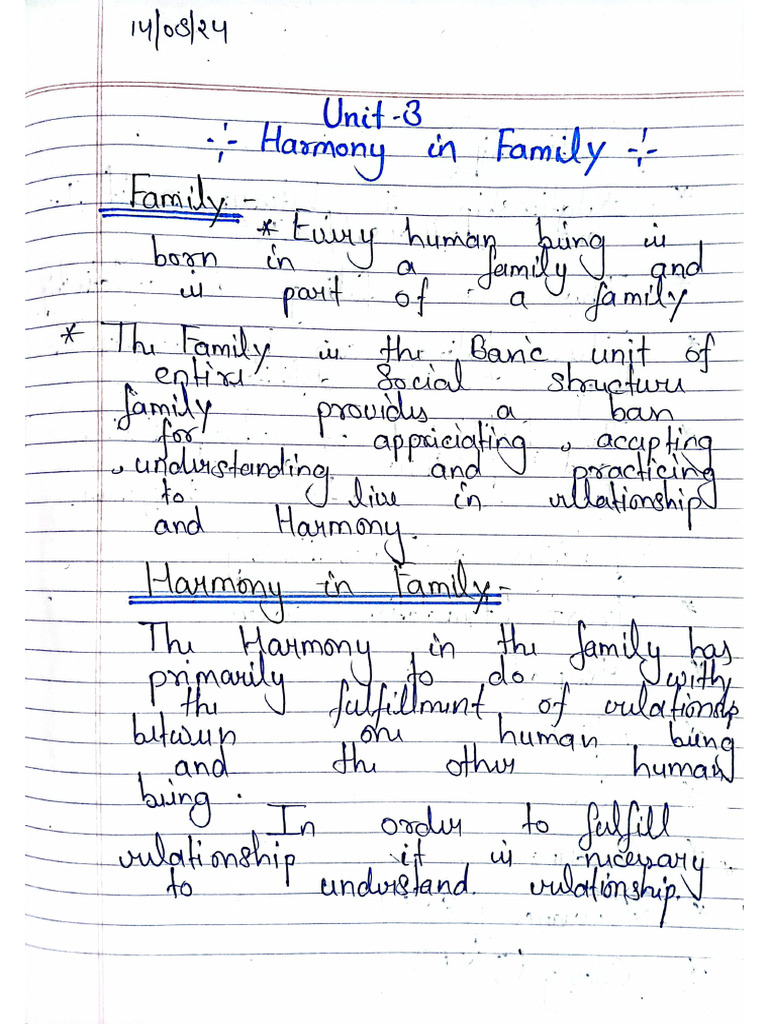 14/08/24
Unit-3
-:- Harmony in Family -:-
Family -
* Every human being is
born in a family and
is part of a family
* The Family is the Basic unit of
entire Social structure
family provides a base
for appriciating, accepting
, understanding and practicing
to live in relationship
and Harmony.
Harmony in Family -
The Harmony in the family has
primarily to do with
the fulfillment of relationship
between one human being
and the other human
being.
In order to fulfill
relationship it is necesary
to understand relationship.